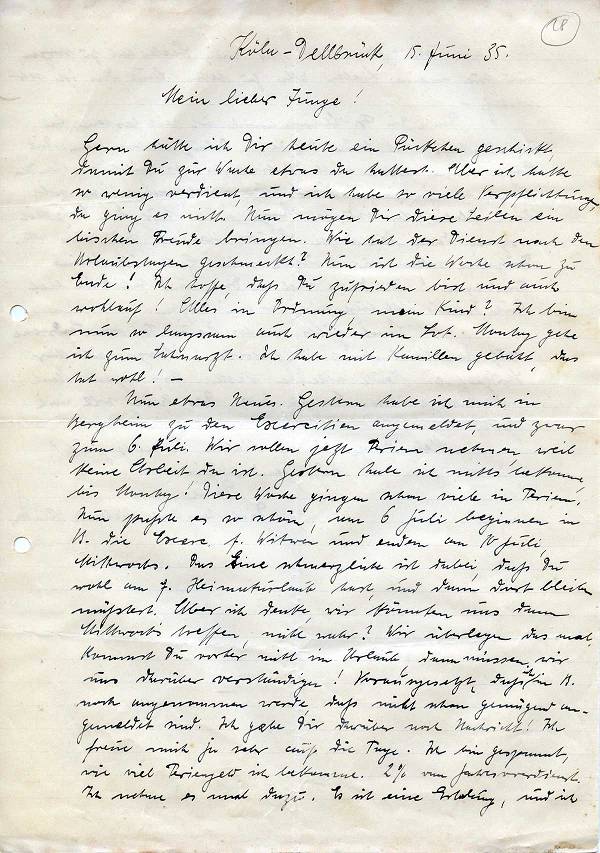 28
Köln-Dellbrück, 15. Juni 35.
Mein lieber Junge!
Gern hätte ich Dir heute ein Päckchen geschickt,
damit Du zur Woche etwas da hattest. Aber ich hatte
so wenig verdient, und ich habe so viele Verpflichtungen,
da ging es nicht. Nun mögen Dir diese Zeilen ein
bischen Freude bringen. Wie hat der Dienst nach den
Urlaubstagen geschmeckt? Nun ist die Woche schon zu
Ende! Ich hoffe, daß Du zufrieden bist und auch
wohlauf! Alles in Ordnung, mein Kind? Ich bin
nun so langsam auch wieder im Lot. Montag gehe
ich zum Zahnarzt. Ich habe mit Kamillen gebadet, das
tut wohl! —
Nun etwas Neues. Gestern habe ich mich in
Bergheim zu den Exercitien angemeldet, und zwar
zum 6. Juli. Wir sollen jetzt Ferien nehmen, weil
keine Arbeit da ist. Gestern habe ich nichts bekommen,
bis Montag! Diese Woche gingen schon viele in Ferien.
Nun paßte es so schön, am 6 Juli beginnen in
B. die Exerc. f. Witwen und enden am 10 Juli,
Mittwochs. Das Eine schmerzliche ist dabei, daß Du
wohl am 7. Heimaturlaub hast, und dann dort bleiben
müßtest. Aber ich denke, wir könnten uns dann
Mittwochs treffen, nicht wahr? Wir überlegen das mal.
Kommst Du vorher nicht in Urlaub, dann müssen wir
uns darüber verständigen! Vorausgesetzt, daß ich in B.
noch angenommen werde, daß nicht schon genügend an-
gemeldet sind. Ich gebe Dir darüber noch Nachricht! Ich
freue mich ja sehr auf die Tage. Ich bin gespannt,
wie viel Feriengeld ich bekomme. 2% vom Jahresverdienst.
Ich nehme es mal dazu. Es ist eine Erholung, und ich